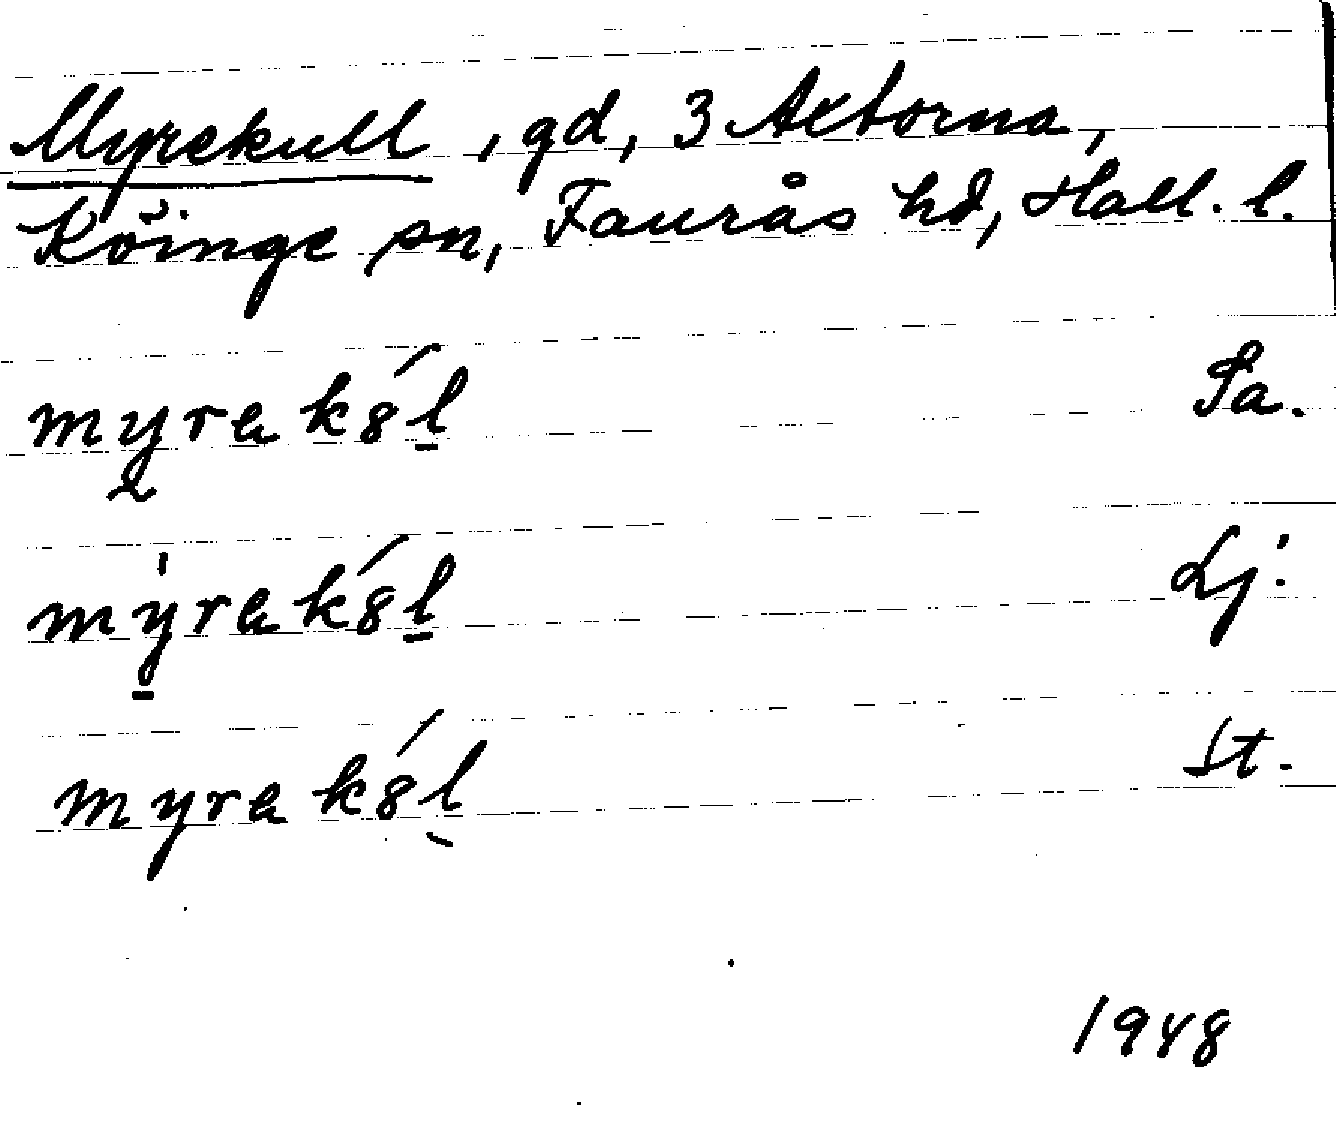 Myrekull, gd, 3 Axtorna,
Köinge sn, Faurås hd, Hall. l.
myraks´l Sa.
mýraks´l Lj.
myraks´l St.
1948